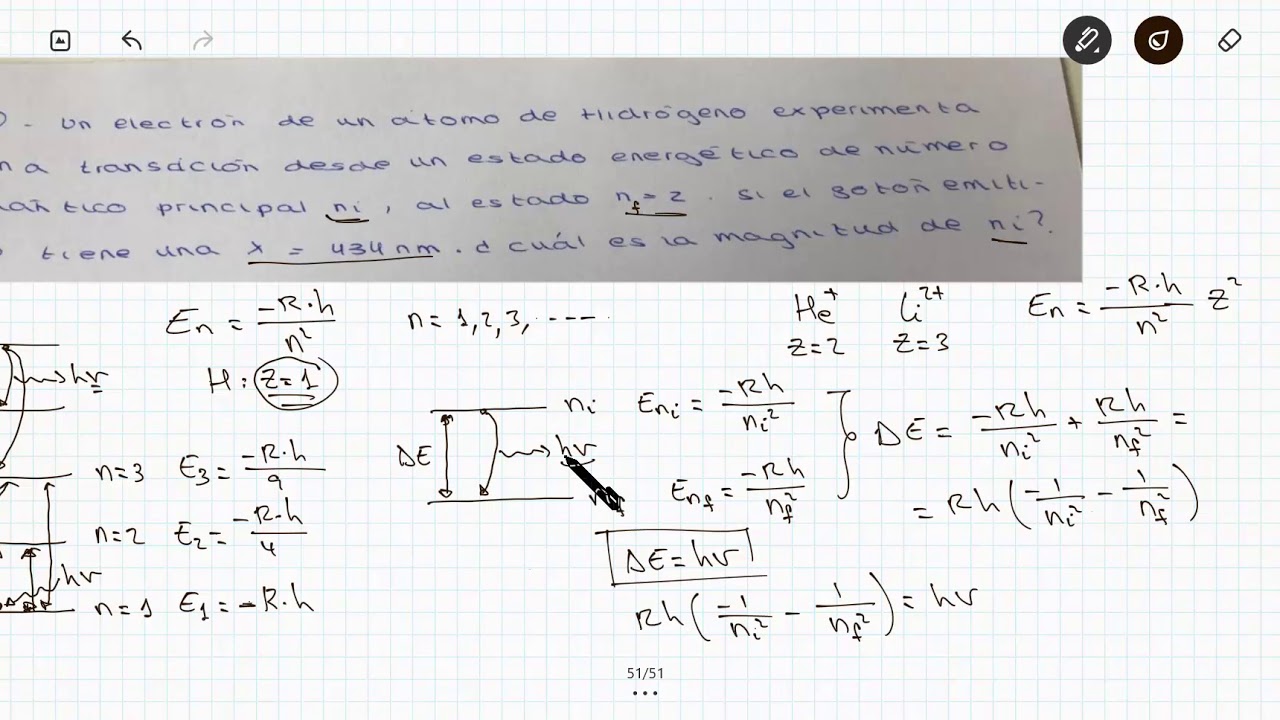 . Un electrón de un átomo de Hidrógeno experimenta
na transición desde un estado energético de número
ántico principal ni, al estado nf = 2. Si el fotón emiti-
o tiene una λ = 434 nm. ¿cuál es la magnitud de ni?
En = -R·h / n²
n = 1, 2, 3, ·····
He⁺ Li²⁺
En = -R·h / n² Z²
Z=2 Z=3
hν
H: Z=1
ni
Eni = -Rh / ni²
ΔE = -Rh / ni² + Rh / nf² =
ΔE
hν
n=3 E3 = -R·h / 9
Enf = -Rh / nf²
= Rh ( -1 / ni² - 1 / nf² )
n=2 E2 = -R·h / 4
ΔE = hν
hν
n=1 E1 = -R·h
Rh ( -1 / ni² - 1 / nf² ) = hν
51/51